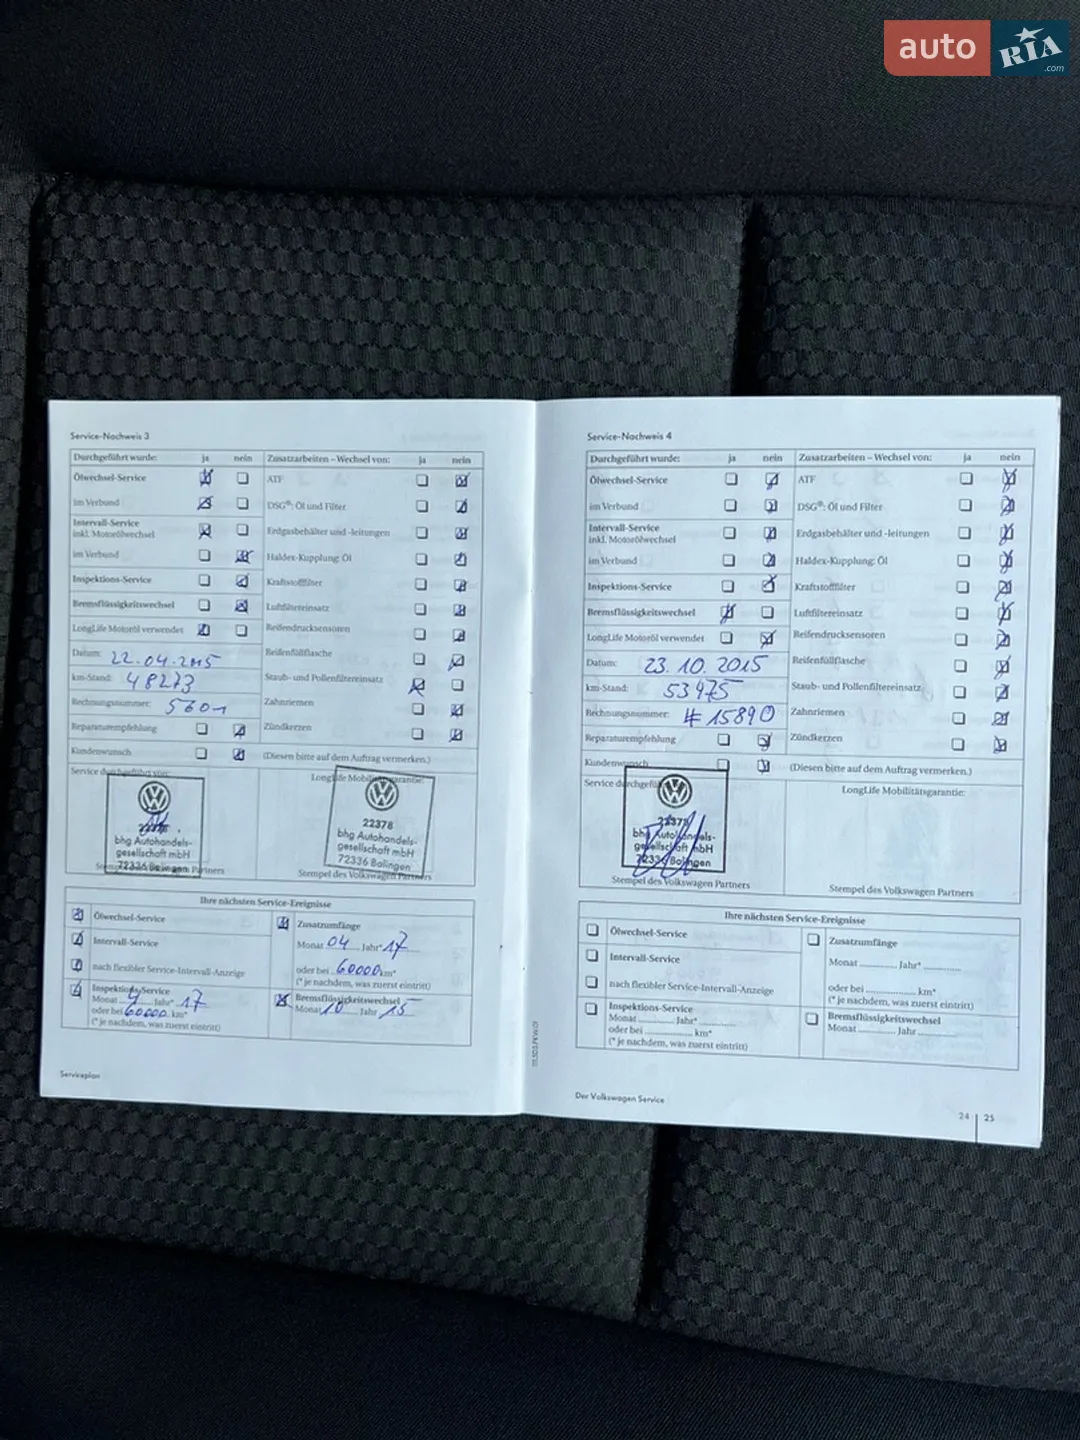 auto RIA.com
Service-Nachweis 3
Durchgeführt wurde: ja nein Zusatzarbeiten – Wechsel von: ja nein
Ölwechsel-Service ATF
im Verbund DSG®: Öl und Filter
Intervall-Service
inkl. Motorölwechsel Erdgasbehälter und -leitungen
im Verbund Haldex-Kupplung: Öl
Inspektions-Service Kraftstofffilter
Bremsflüssigkeitswechsel Luftfiltereinsatz
LongLife Motoröl verwendet Reifendrucksensoren
Datum: 22.04.2015 Reifenfüllflasche
km-Stand: 48273 Staub- und Pollenfiltereinsatz
Rechnungsnummer: 5601 Zahnriemen
Reparaturempfehlung Zündkerzen
Kundenwunsch (Diesen bitte auf dem Auftrag vermerken.)
Service durchgeführt von: LongLife Mobilitätsgarantie:
22378
bhg Autohandels-
gesellschaft mbH
72336 Balingen
22378
bhg Autohandels-
gesellschaft mbH
72336 Balingen
Stempel des Volkswagen Partners Stempel des Volkswagen Partners
Ihre nächsten Service-Ereignisse
Ölwechsel-Service Zusatzumfänge
Intervall-Service Monat 04 Jahr* 17
nach flexibler Service-Intervall-Anzeige oder bei 60000 km*
(* je nachdem, was zuerst eintritt)
Inspektions-Service Bremsflüssigkeitswechsel
Monat 4 Jahr* 17 Monat 10 Jahr 15
oder bei 60000 km*
(* je nachdem, was zuerst eintritt)
Serviceplan
Service-Nachweis 4
Durchgeführt wurde: ja nein Zusatzarbeiten – Wechsel von: ja nein
Ölwechsel-Service ATF
im Verbund DSG®: Öl und Filter
Intervall-Service
inkl. Motorölwechsel Erdgasbehälter und -leitungen
im Verbund Haldex-Kupplung: Öl
Inspektions-Service Kraftstofffilter
Bremsflüssigkeitswechsel Luftfiltereinsatz
LongLife Motoröl verwendet Reifendrucksensoren
Datum: 23.10.2015 Reifenfüllflasche
km-Stand: 53475 Staub- und Pollenfiltereinsatz
Rechnungsnummer: #15890 Zahnriemen
Reparaturempfehlung Zündkerzen
Kundenwunsch (Diesen bitte auf dem Auftrag vermerken.)
Service durchgeführt LongLife Mobilitätsgarantie:
22378
bhg Autohandels-
gesellschaft mbH
72336 Balingen
Stempel des Volkswagen Partners Stempel des Volkswagen Partners
Ihre nächsten Service-Ereignisse
Ölwechsel-Service Zusatzumfänge
Intervall-Service Monat Jahr*
nach flexibler Service-Intervall-Anzeige oder bei km*
(* je nachdem, was zuerst eintritt)
Inspektions-Service Bremsflüssigkeitswechsel
Monat Jahr* Monat Jahr
oder bei km*
(* je nachdem, was zuerst eintritt)
Der Volkswagen Service
24 | 25